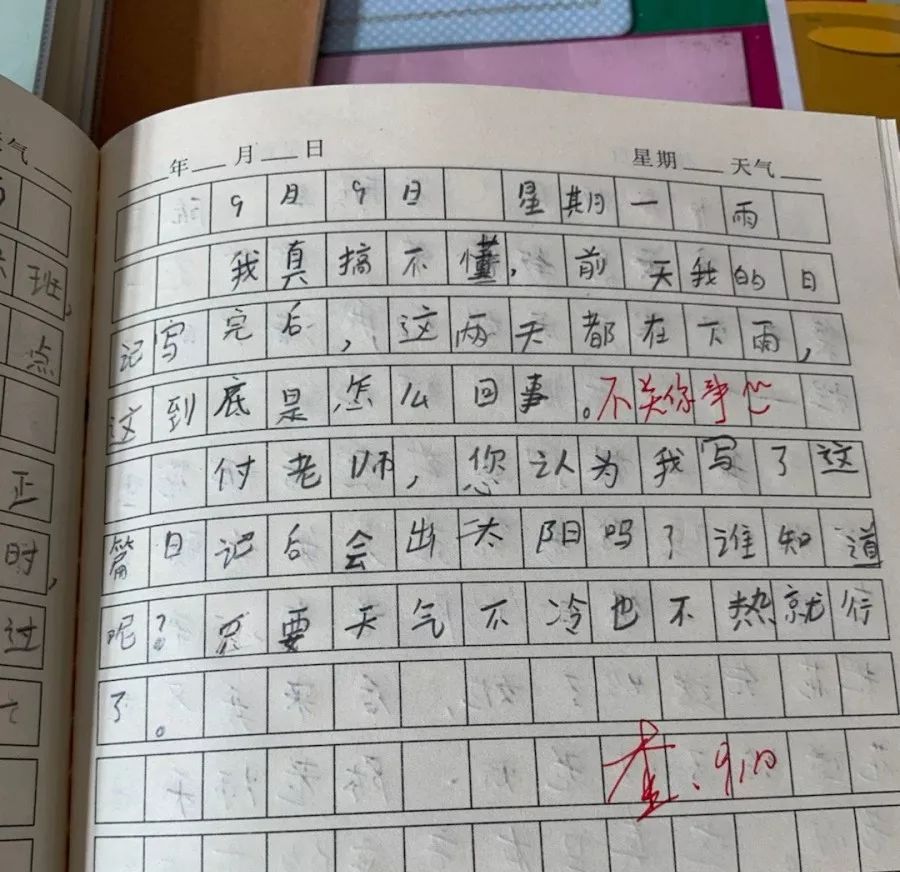 天气
班,
点
正
时,
过
年 月 日 星期 天气
9月9日 星期一 雨
我真搞不懂,前天我的日
记写完后,这两天都在下雨,
这到底是怎么回事。不关你事
付老师,您认为我写了这
篇日记后会出太阳吗?谁知道
呢?只要天气不冷也不热就行
了。
查.9.10